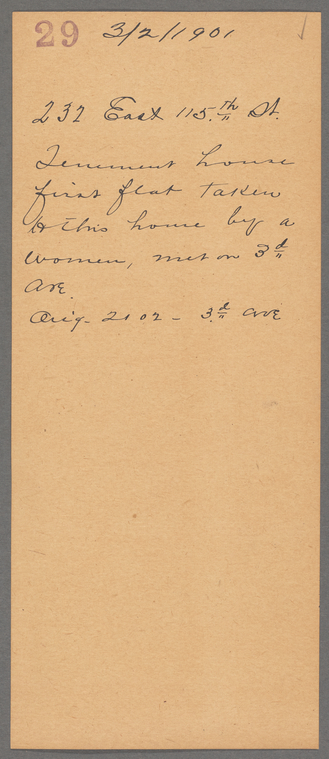 29 3/2/1901
232 East 115th St.
Tenement house
first flat taken
to this house by a
women, met on 3d
ave.
Orig. 2102 - 3d ave